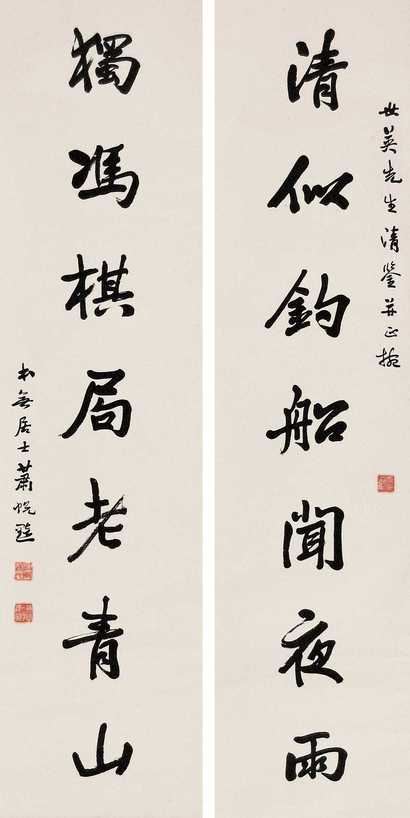 世英先生清鑒并正
清似釣船聞夜雨
獨馮棋局老青山
本無居士蕭蜕盦